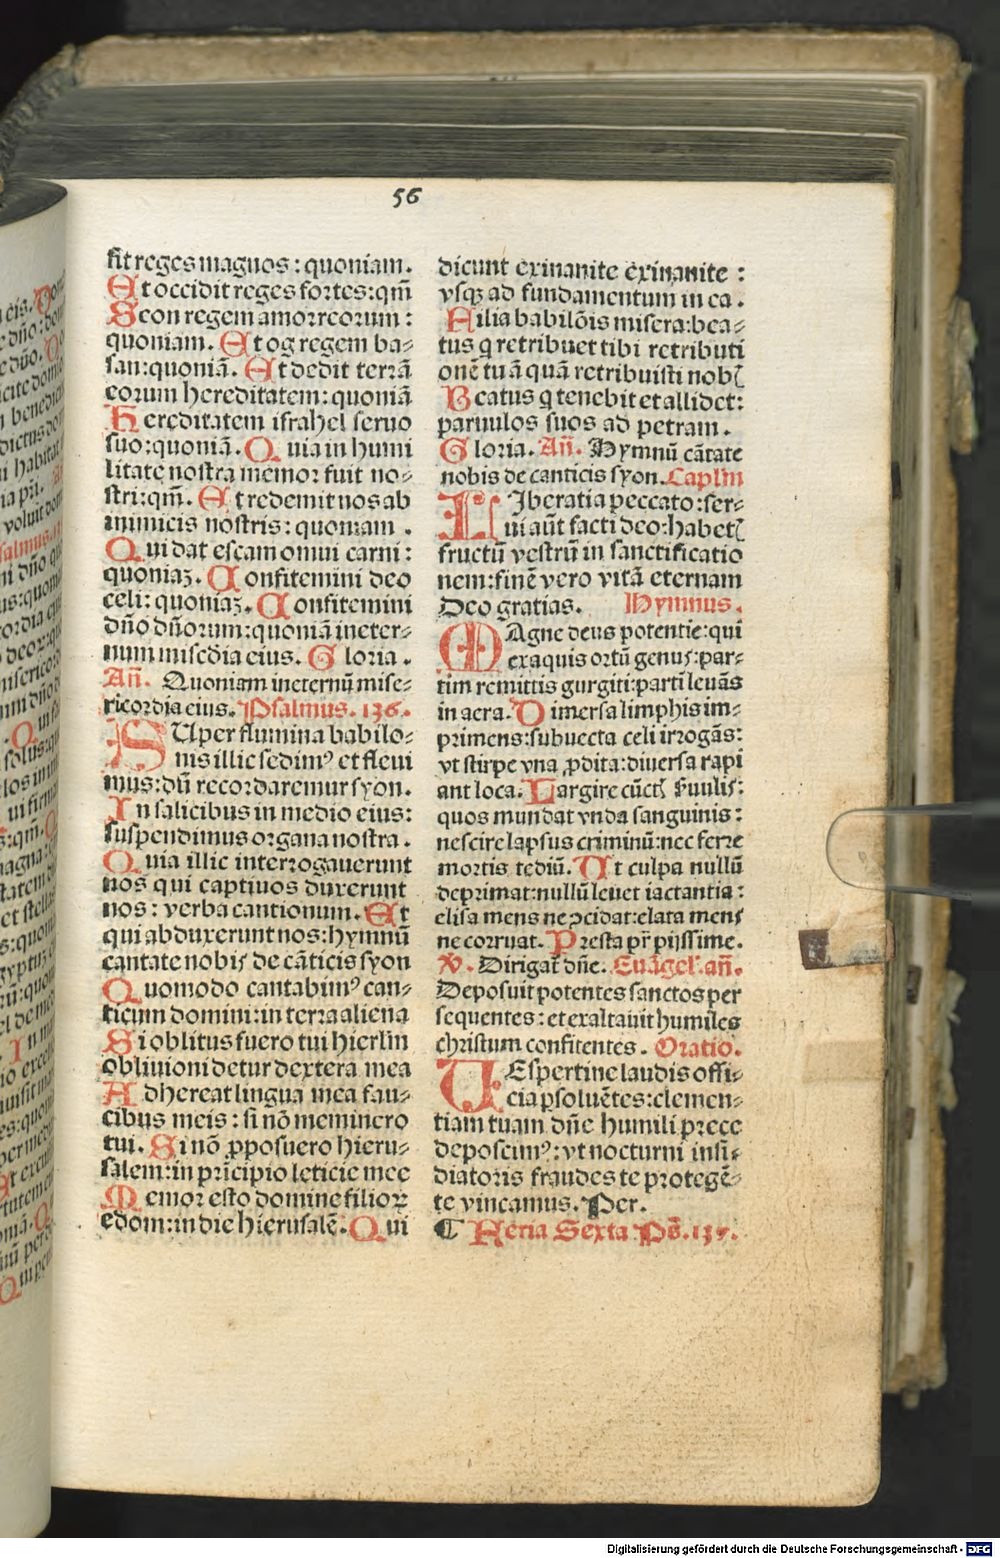 56
fit reges magnos : quoniam.
Et occidit reges fortes:qm̄
Seon regem amorreorum :
quoniam. Et og regem ba⸗
san:quoniā. Et dedit terrā
eorum hereditatem: quoniā
Hereditatem israhel seruo
suo:quoniā. Quia in humi
litate nostra memor fuit no⸗
stri:qm̄. Et redemit nos ab
inimicis nostris: quoniam .
Qui dat escam omni carni :
quoniaꝫ. Confitemini deo
celi: quoniaꝫ. Confitemini
dn̄o dn̄orum:quoniā in eter⸗
num misc̄dia eius. Gloria .
Añ. Quoniam in eternū mise⸗
ricordia eius. Psalmus. 136.
SUper flumina babilo⸗
nis illic sedimꝰ et fleui
mus:dū recordaremur syon.
In salicibus in medio eius:
suspendimus organa nostra .
Quia illic interrogauerunt
nos qui captiuos duxerunt
nos : verba cantionum. Et
qui abduxerunt nos: hymnū
cantate nobis de cāticis syon
Quomodo cantabimꝰ can⸗
ticum domini: in terra aliena
Si oblitus fuero tui hierlm̄
obliuioni detur dextera mea
Adhereat lingua mea fau⸗
cibus meis : si nō meminero
tui. Si nō ꝓposuero hieru⸗
salem: in prīcipio leticie mee
Memor esto domine filioꝝ
edom: in die hierusalē. Qui
dicunt exinanite exinanite :
vsqꝫ ad fundamentum in ea .
Filia babilōis misera:bea⸗
tus q retribuet tibi retributi
onē tuā quā retribuisti nobꝭ
Beatus q tenebit et allidet:
paruulos suos ad petram .
Gloria. Añ. Hymnū cātate
nobis de canticis syon. Caplm̄
LIberati a peccato: ser⸗
ui aūt facti deo: habetꝭ
fructū vestrū in sanctificatio
nem: finē vero vitā eternam
Deo gratias. Hymnus.
MAgne deus potentie: qui
ex aquis ortū genus: par⸗
tim remittis gurgiti: parti leuās
in aera. Dimersa limphis im⸗
primens: subuecta celi irrogās:
vt stirpe vna ꝓdita: diuersa rapi
ant loca. Largire cūctꝭ seruulis:
quos mundat vnda sanguinis:
nescire lapsus criminū: nec ferre
mortis tediū. Ut culpa nullū
deprimat: nullū leuet iactantia :
elisa mens ne ɔcidat: elata mens
ne corruat. Presta pr̄ pijssime.
℣. Dirigat̄ dn̄e. Euāgel. añ.
Deposuit potentes sanctos per
sequentes : et exaltauit humiles
christum confitentes . Oratio.
UEspertine laudis offi⸗
cia ꝑsoluētes: clemen⸗
tiam tuam dn̄e humili prece
deposcimꝰ: vt nocturni insi⸗
diatoris fraudes te protegē⸗
te vincamus. Per.
¶ Feria Sexta Ps̄. 137.
Digitalisierung gefördert durch die Deutsche Forschungsgemeinschaft - DFG